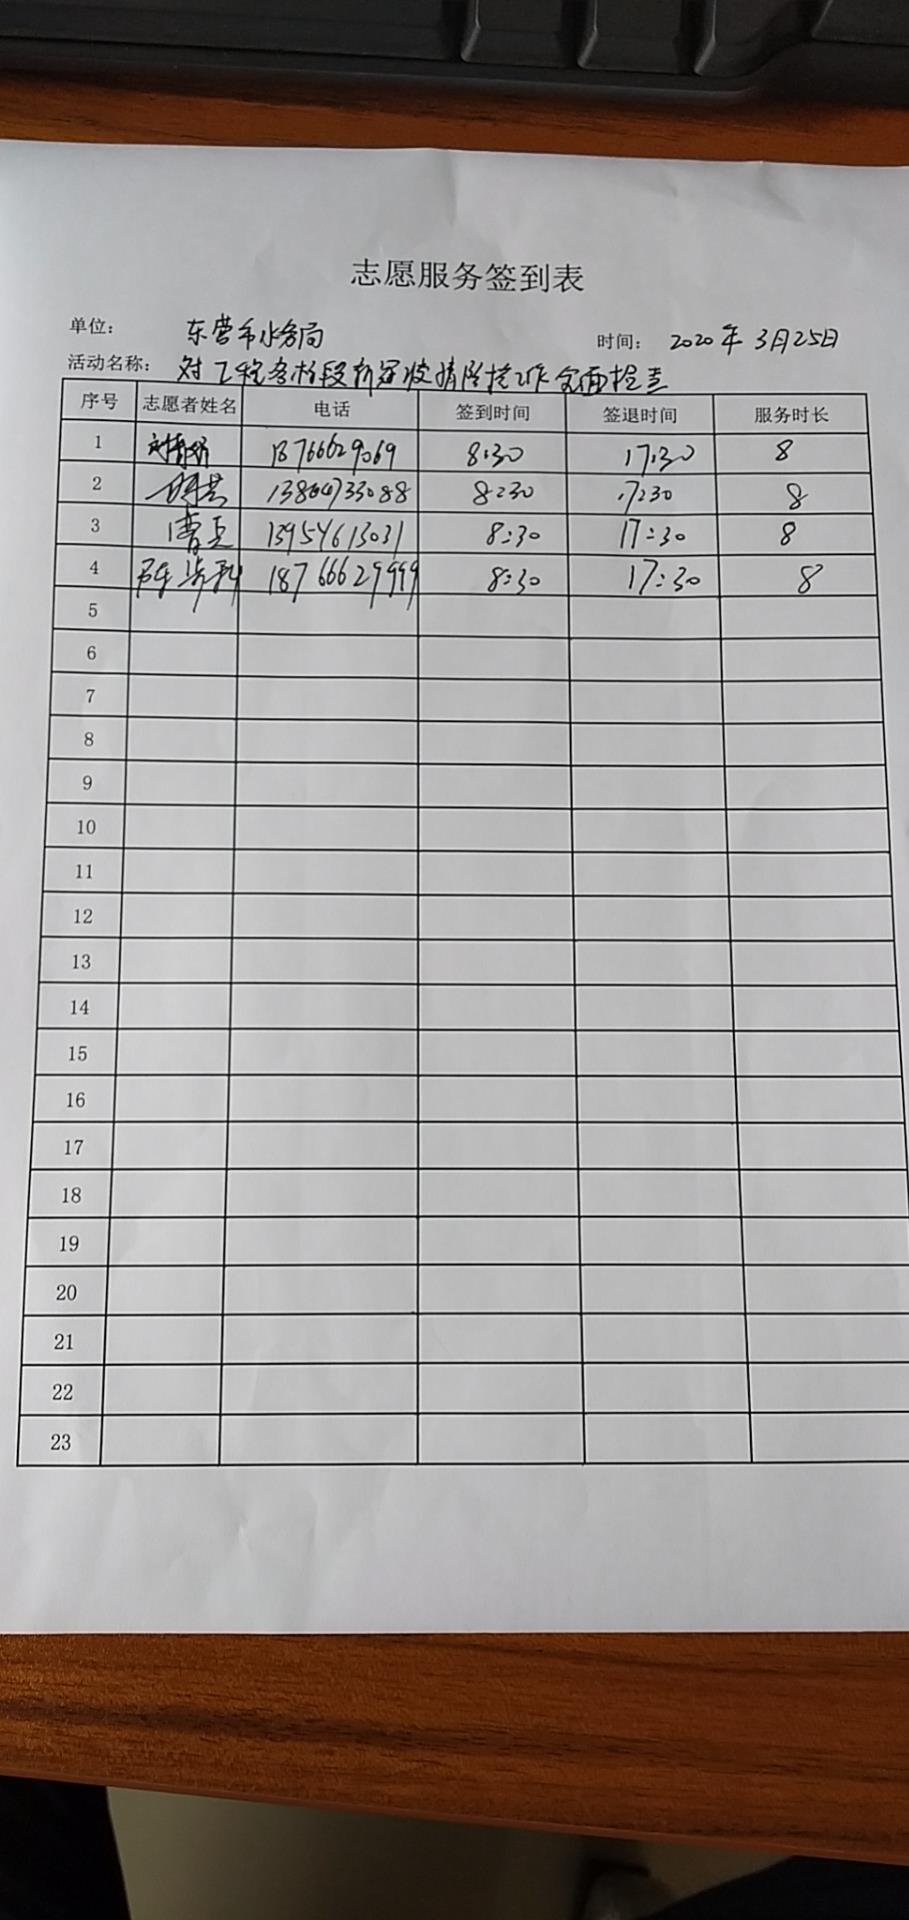 志愿服务签到表
单位： 东营市水务局 时间： 2020年3月25日
活动名称： 对工程各标段新冠疫情防控工作全面检查
序号 志愿者姓名 电话 签到时间 签退时间 服务时长
1 18766629069 8:30 17:30 8
2 13864733088 8:30 17:30 8
3 曹 13954613031 8:30 17:30 8
4 陈 18766629999 8:30 17:30 8
5
6
7
8
9
10
11
12
13
14
15
16
17
18
19
20
21
22
23